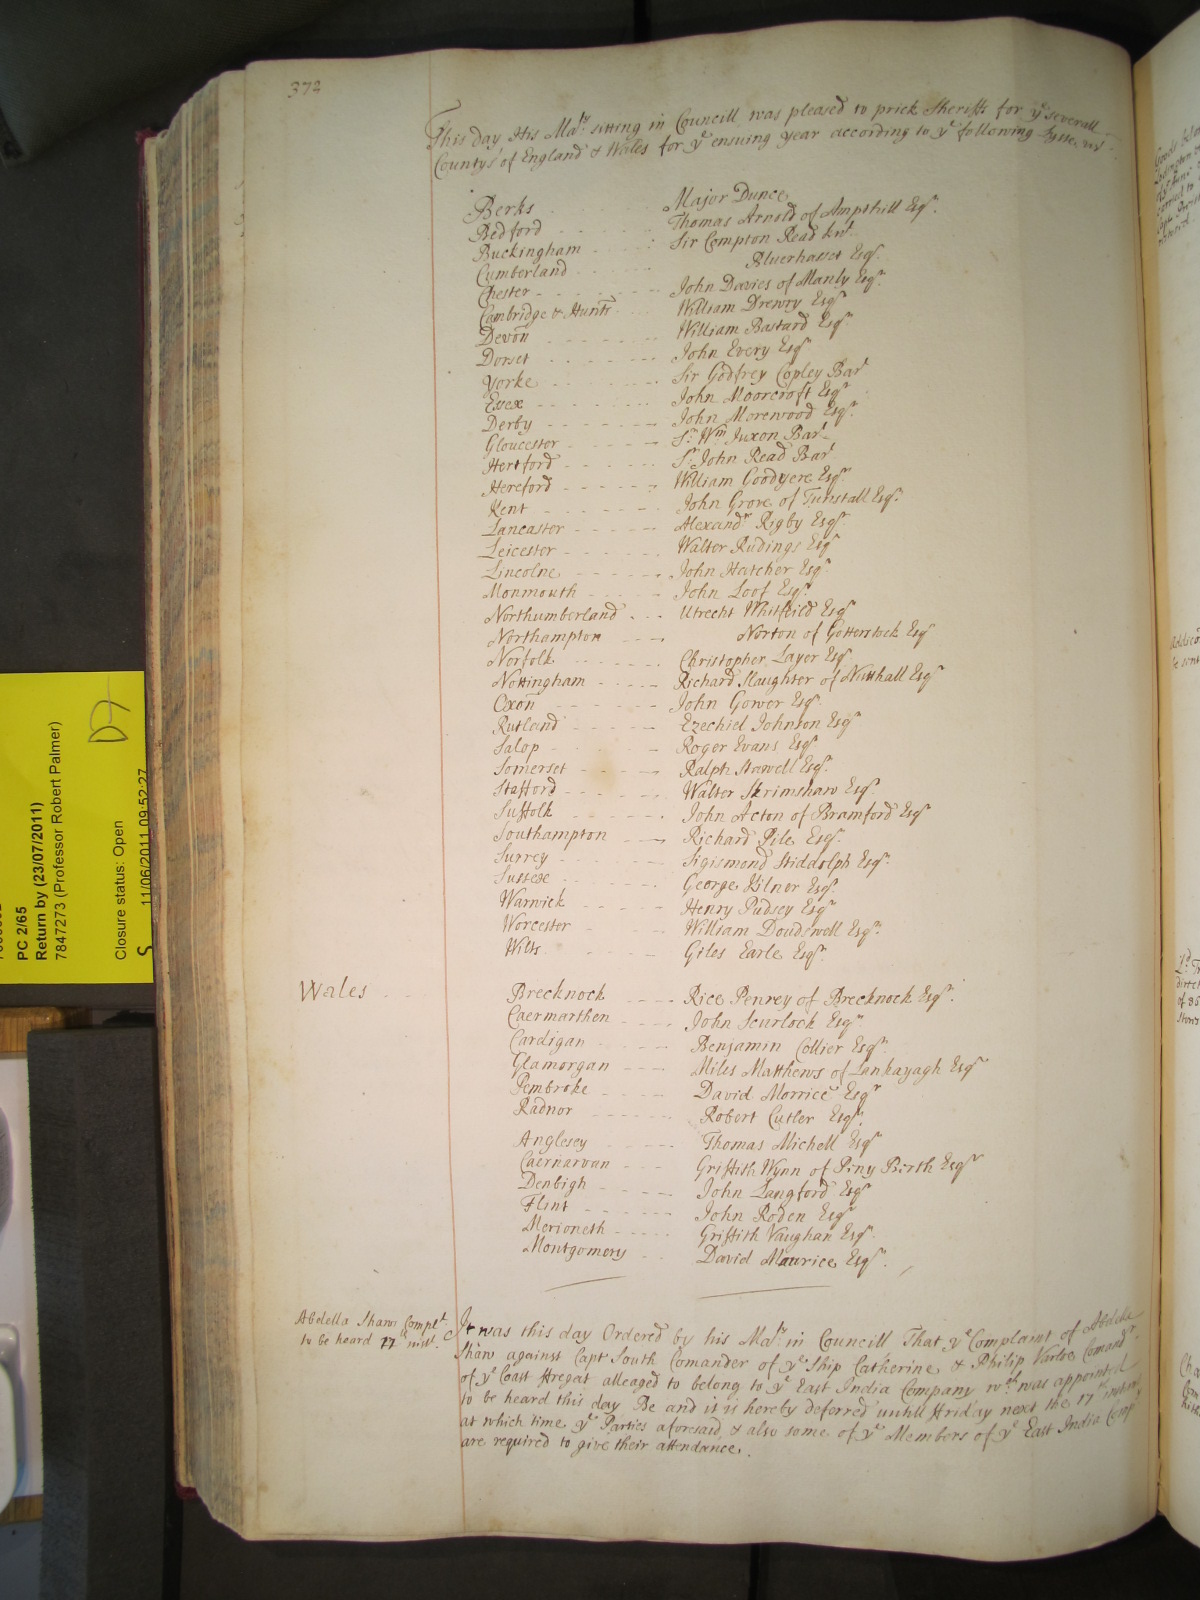 372
This day His Ma.ty sitting in Councill was pleased to prick Sheriffs for ye severall
Countys of England & Wales for ye ensuing year according to ye following Lyste, viz.
Berks Major Dunce
Bedford Thomas Arnold of Ampthill Esqr.
Buckingham Sir Compton Read knt.
Cumberland Bluerhasset Esqr.
Chester John Davies of Manly Esqr.
Cambridge & Huntr. William Drewry Esqr
Devon William Bastard Esqr
Dorset John Every Esqr
Yorke Sir Godfrey Copley Bart
Essex John Moorcroft Esqr
Derby John Morewood Esqr.
Gloucester Sr. Wm Juxon Bart
Hertford Sr. John Read Bart
Hereford William Goodyere Esqr.
Kent John Grove of Tunstall Esqr.
Lancaster Alexandr Rigby Esqr.
Leicester Walter Rudings Esqr
Lincolne John Hatcher Esqr.
Monmouth John Loof Esqr.
Northumberland Utrecht Whitfeild Esqr
Northampton Norton of Gotterstock Esqr
Norfolk Christopher Layer Esqr
Nottingham Richard Slaughter of Nutthall Esqr
Oxon John Gower Esqr.
Rutland Ezechiel Johnson Esqr
Salop Roger Evans Esqr
Somerset Ralph Stawell Esqr.
Stafford Walter Skrimshaw Esqr.
Suffolk John Acton of Bramford Esqr
Southampton Richard Pile Esqr.
Surrey Sigismond Stiddolph Esqr.
Sussex George Kilner Esqr.
Warwick Henry Pudsey Esqr
Worcester William Doudswell Esqr.
Wilts Giles Earle Esqr.
Wales
Brecknock Rice Penrey of Brecknock Esqr.
Caermarthen John Scurlock Esqr
Cardigan Benjamin Collier Esqr.
Glamorgan Miles Matthews of Lankayagh Esqr
Pembroke David Morrice Esqr
Radnor Robert Cutler Esqr.
Anglesey Thomas Michell Esqr
Caernarvan Griffith Wynn of Piny Birth Esqr
Denbigh John Langford Esqr
Flint John Roden Esqr
Merioneth Griffith Vaughan Esqr.
Montgomery David Maurice Esqr.
Abdella Shaws Complt.
to be heard 17th inst.
It was this day Ordered by his Maty in Councill That ye Complaint of Abdella
Shaw against Capt South Comander of ye Ship Catherine & Philip Varlo Comandr.
of ye Coast ffregat alleaged to belong to ye East India Company wch was appointed
to be heard this day Be and it is hereby deferred untill ffriday next the 17th instant
at which time ye Parties aforesaid, & also some of ye Members of ye East India Comp
are required to give their attendance.
PC 2/65
Return by (23/07/2011)
7847273 (Professor Robert Palmer)
Closure status: Open
S 11/06/2011 09:52:27
D7